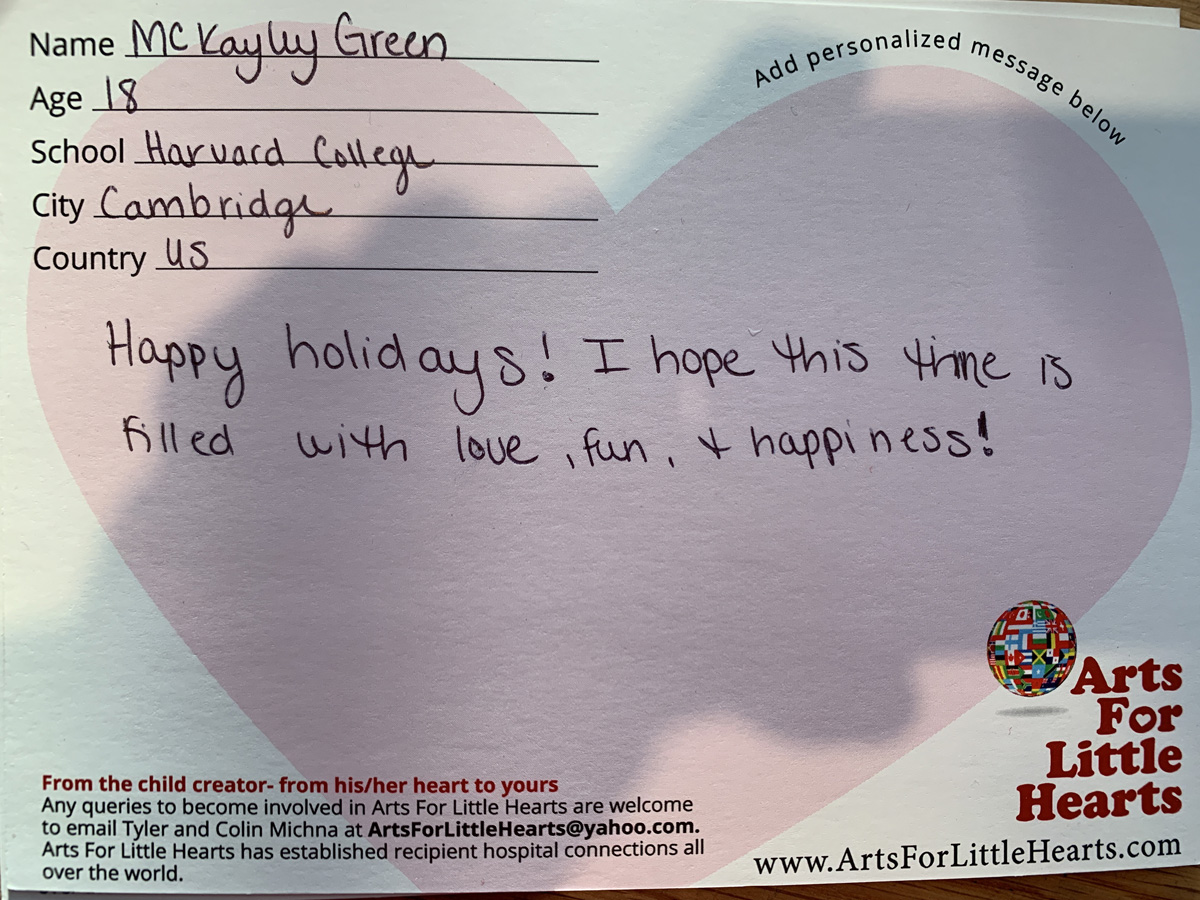 Name McKayley Green
Age 18
School Harvard College
City Cambridge
Country US
Add personalized message below
Happy holidays! I hope this time is
filled with love, fun, & happiness!
Arts
For
Little
Hearts
www.ArtsForLittleHearts.com
From the child creator- from his/her heart to yours
Any queries to become involved in Arts For Little Hearts are welcome
to email Tyler and Colin Michna at ArtsForLittleHearts@yahoo.com.
Arts For Little Hearts has established recipient hospital connections all
over the world.